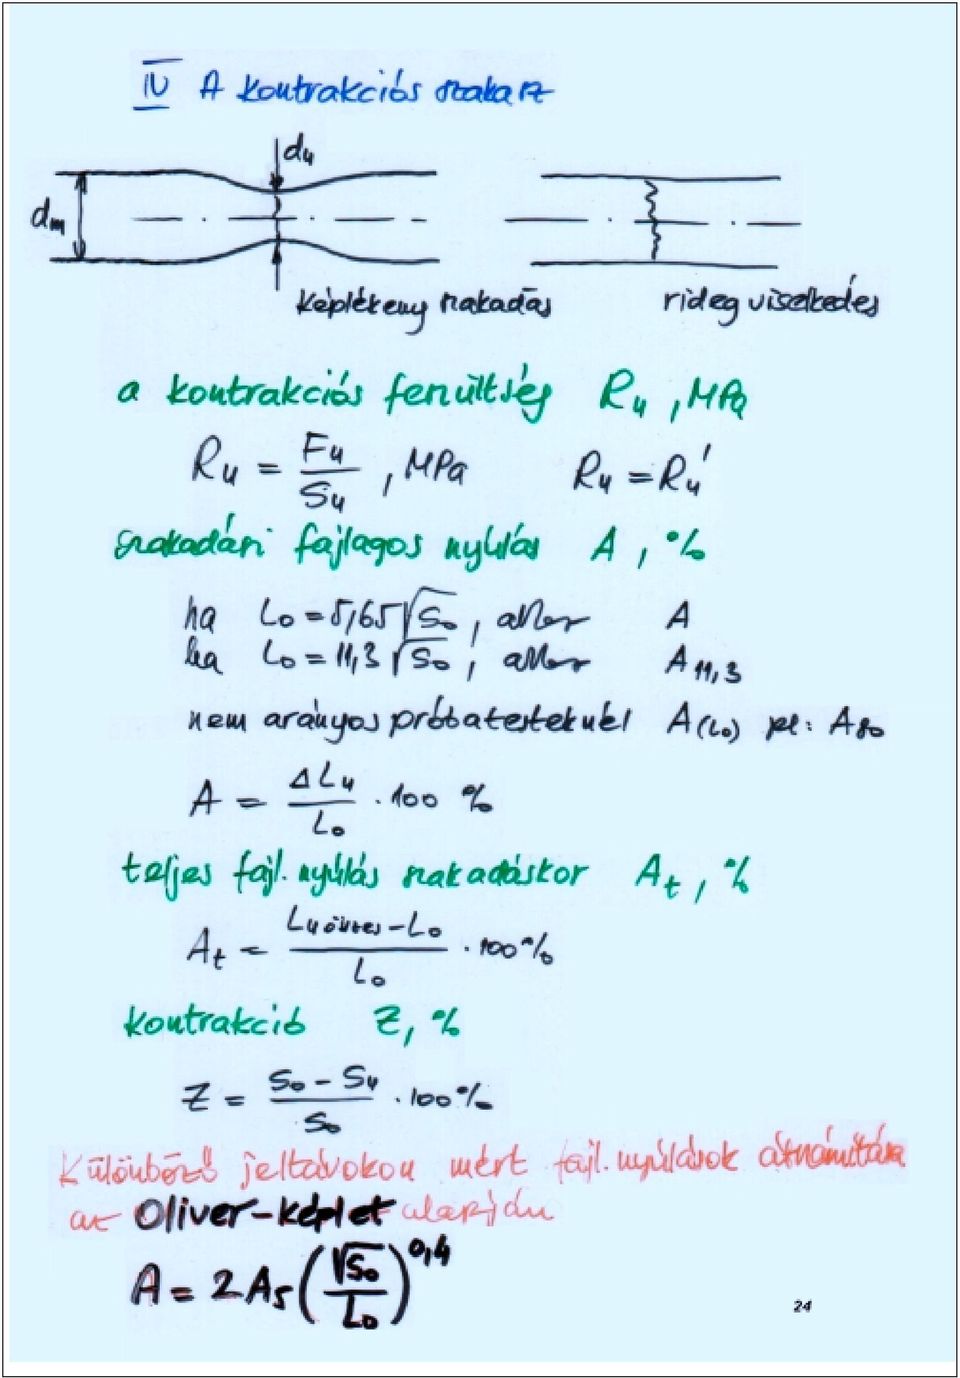 IV A kontrakciós szakasz
du
dm
képlékeny szakadás
rideg viselkedés
a kontrakciós feszültség Ru , MPa
Ru = Fu / Su , MPa Ru = Ru'
szakadási fajlagos nyúlás A , %
ha Lo = 5,65 √So , akkor A
ha Lo = 11,3 √So , akkor A11,3
nem arányos próbatesteknél A(Lo) pl: A80
A = ΔLu / Lo · 100 %
teljes fajl. nyúlás szakadáskor At , %
At = Lu összes - Lo / Lo · 100%
kontrakció Z, %
Z = So - Su / So · 100%
Különböző jeltávokon mért fajl. nyúlások átszámítása
az Oliver-képlet alapján
A = 2 A5 (√So / Lo)^0,4
24